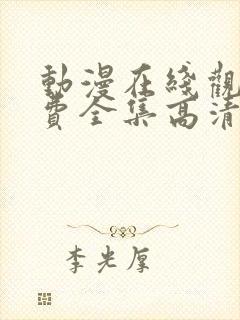 動漫在綫觀
費全集高清
李光厚